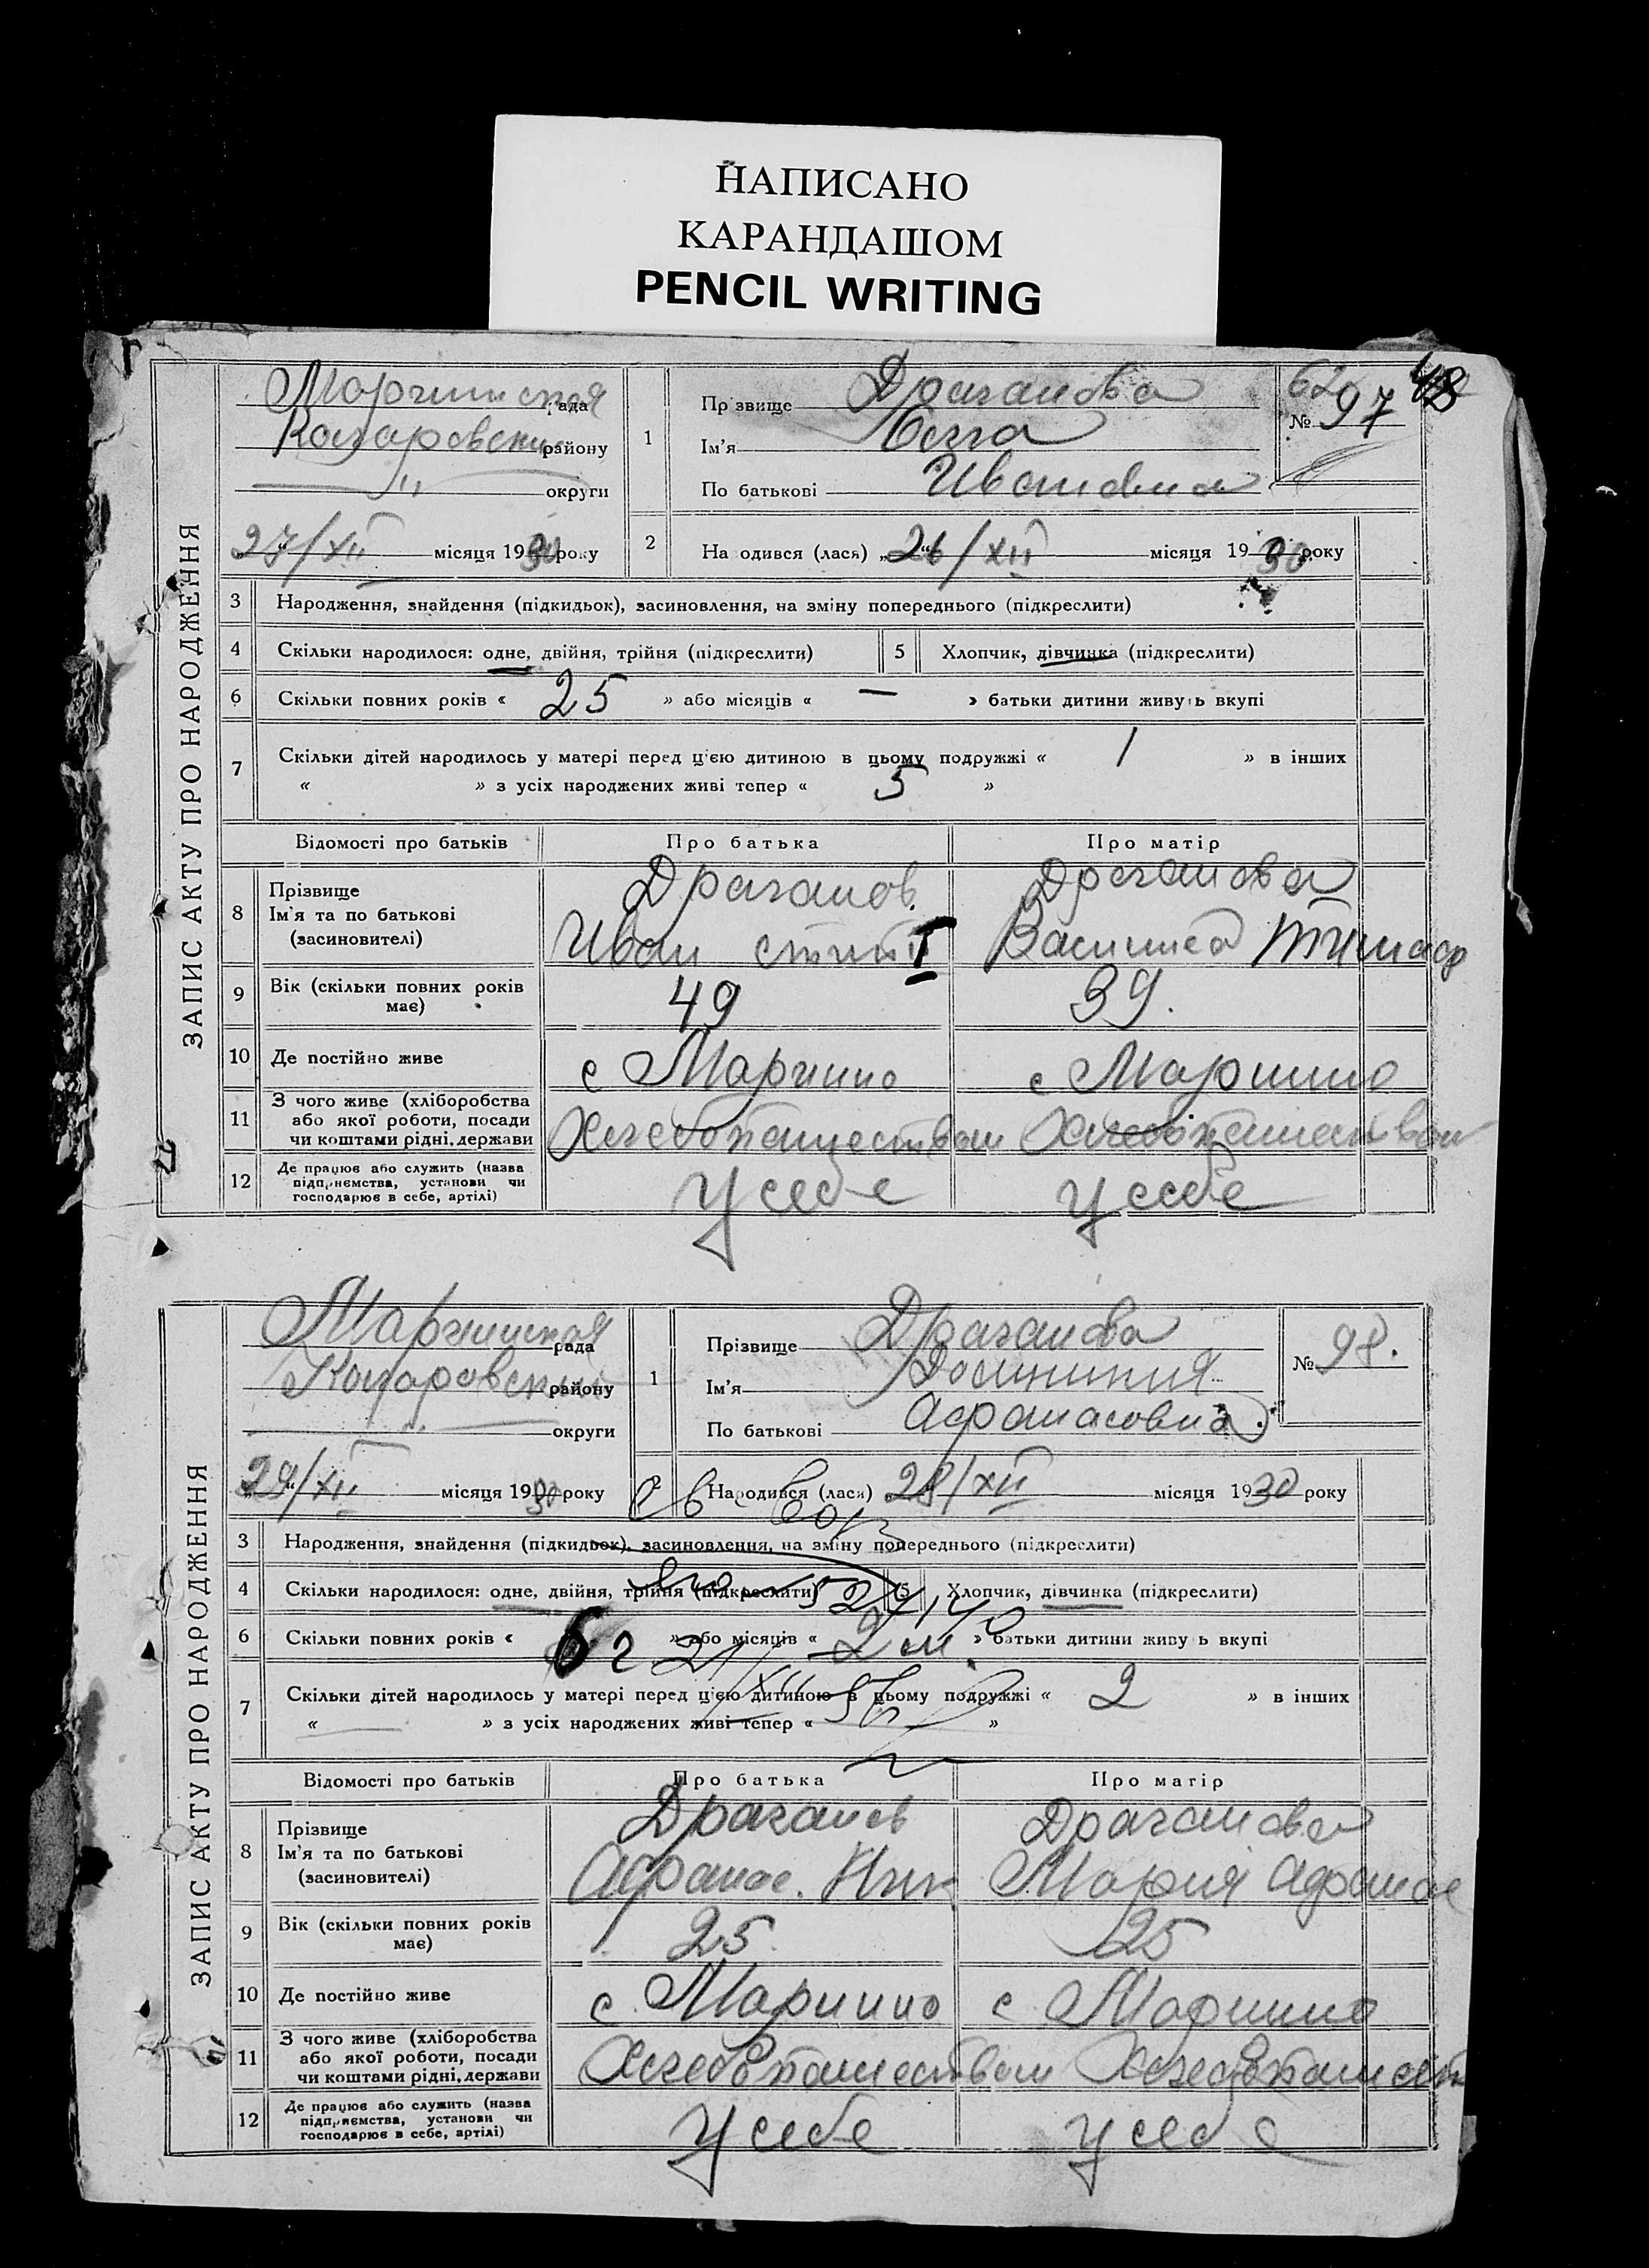 НАПИСАНО
КАРАНДАШОМ
PENCIL WRITING
ЗАПИС АКТУ ПРО НАРОДЖЕННЯ
рада
району
округи
27/XII місяця 1930 року
1
Прізвище Драганова
Ім'я
По батькові Ивановна
№ 97
2 Народився (лася) „26/XII місяця 1930 року
3 Народження, знайдення (підкидьок), засиновлення, на зміну попереднього (підкреслити)
4 Скільки народилося: одне, двійня, трійня (підкреслити)
5 Хлопчик, дівчинка (підкреслити)
6 Скільки повних років « 25 » або місяців « — » батьки дитини живуть вкупі
7 Скільки дітей народилось у матері перед ц'єю дитиною в цьому подружжі « 1 » в інших
« » з усіх народжених живі тепер « 5 »
Відомості про батьків Про батька Про матір
8 Прізвище
Ім'я та по батькові
(засиновителі)
Драганов Драганова
Иван Василиса
9 Вік (скільки повних років має) 49 39.
10 Де постійно живе с Марьино с Марьино
11 З чого живе (хліборобства
або якої роботи, посади
чи коштами рідні, держави
Хлебопашеством Хлебопашеством
12 Де працює або служить (назва
підприємства, установи чи
господарює в себе, артілі)
У себе У себе
ЗАПИС АКТУ ПРО НАРОДЖЕННЯ
рада
району
округи
29/XII місяця 1930 року
1
Прізвище Драганова
Ім'я
По батькові Афанасовна
№ 98.
Народився (лася) 28/XII місяця 1930 року
3 Народження, знайдення (підкидьок), засиновлення, на зміну попереднього (підкреслити)
4 Скільки народилося: одне, двійня, трійня (підкреслити)
5 Хлопчик, дівчинка (підкреслити)
6 Скільки повних років « » або місяців « » батьки дитини живуть вкупі
7 Скільки дітей народилось у матері перед ц'єю дитиною в цьому подружжі « 2 » в інших
« — » з усіх народжених живі тепер « »
Відомості про батьків Про батька Про матір
8 Прізвище
Ім'я та по батькові
(засиновителі)
Драганов Драганова
Афанас. Ник Мария Афанас
9 Вік (скільки повних років має) 25 25
10 Де постійно живе с Марьино с Марьино
11 З чого живе (хліборобства
або якої роботи, посади
чи коштами рідні, держави
Хлебопашеством Хлебопашест
12 Де працює або служить (назва
підприємства, установи чи
господарює в себе, артілі)
У себе У себе